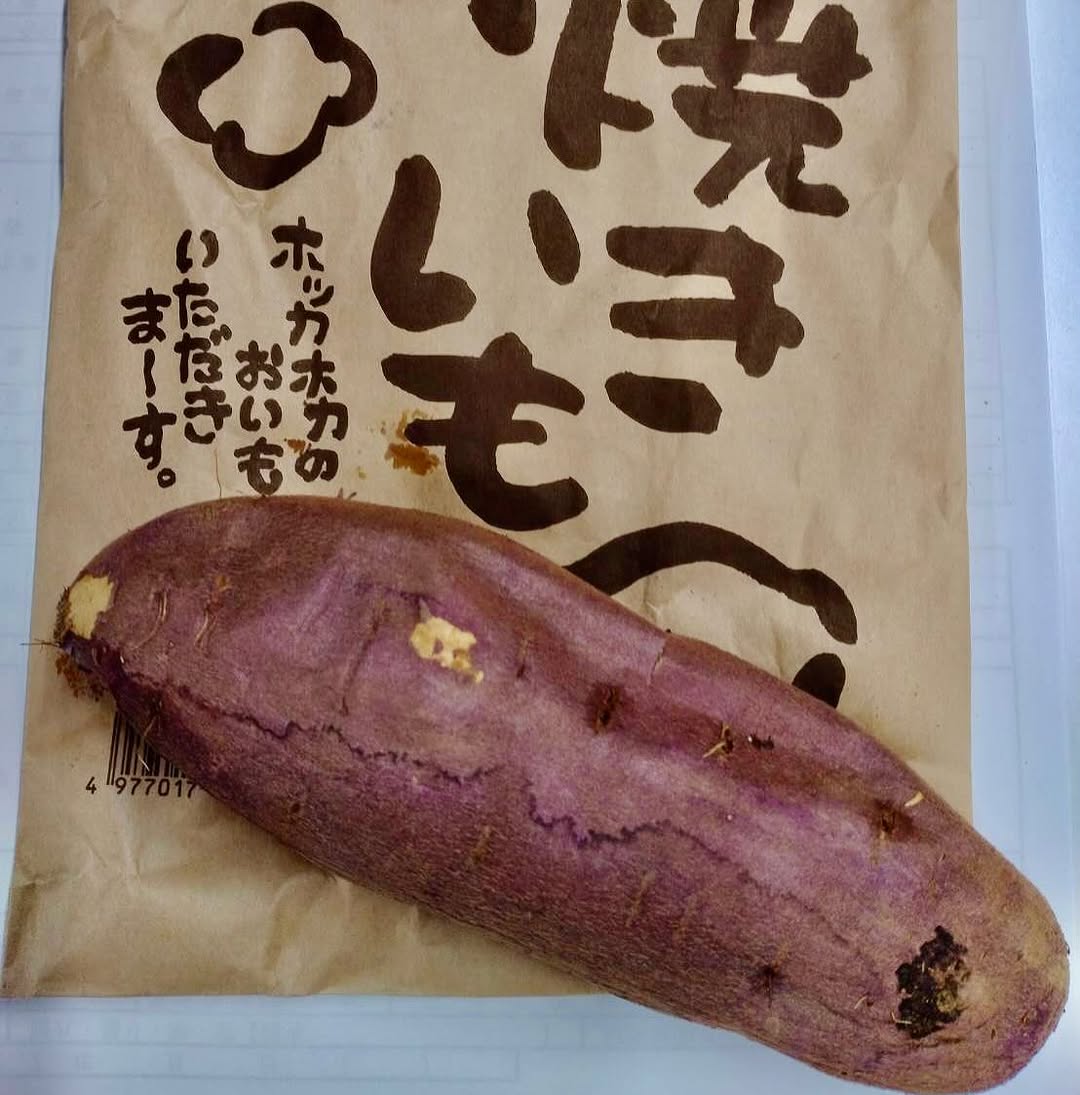 焼き
いも
ホッカホカの
おいも
いただき
ま〜す。
4 977017